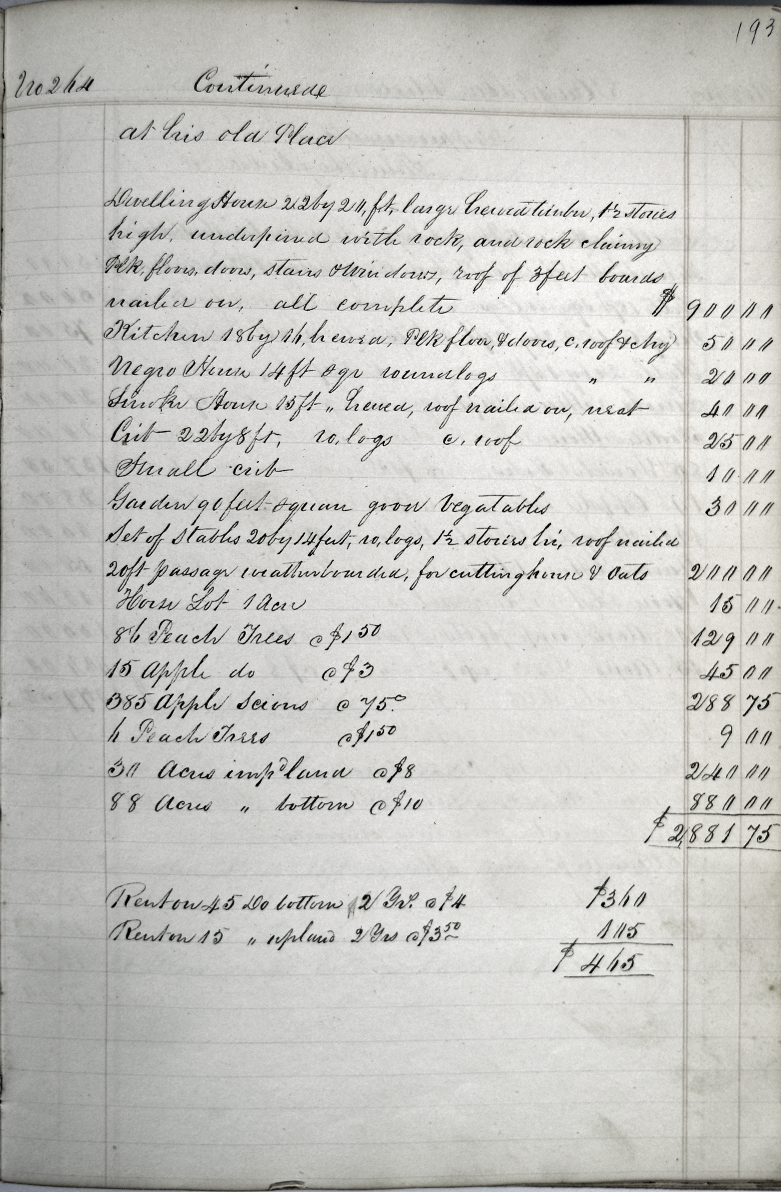 193
No 264 Continued
at his old Place
Dwelling House 22 by 20, ft, large hewed timber, 1½ stories
high, underpined with rock, and rock chimny
Plk. floors, doors, stairs & Windows, roof of 3 feet boards
nailed on, all complete $ 900 00
Kitchen 18 by 16, hewed, Plk floor, & doors, c. roof & chy 50 00
Negro House 14 ft sqr round logs " " 20 00
Smoke House 15 ft " hewed, roof nailed on, neat 40 00
Crib 22 by 8 ft, ro, logs c. roof 25 00
Small crib 10 00
Garden 90 feet square good Vegatables 30 00
Set of Stables 20 by 14 feet, ro, logs, 1½ stories hi, roof nailed
20 ft passage weatherboarded, for cutting house & Oats 200 00
Horse Lot 1 Acre 15 00
86 Peach Trees @ $1 50 129 00
15 Apple do @ $3 45 00
385 Apple Scions @ 75.c 288 75
6 Peach Trees @ $1 50 9 00
30 Acres impd land @ $8 240 00
88 Acres " bottom @ $10 880 00
$ 2,881 75
Rent on 45 Do bottom 2 Yrs. @ $4 $360
Rent on 15 " upland 2 Yrs @ $3 50 105
$ 465